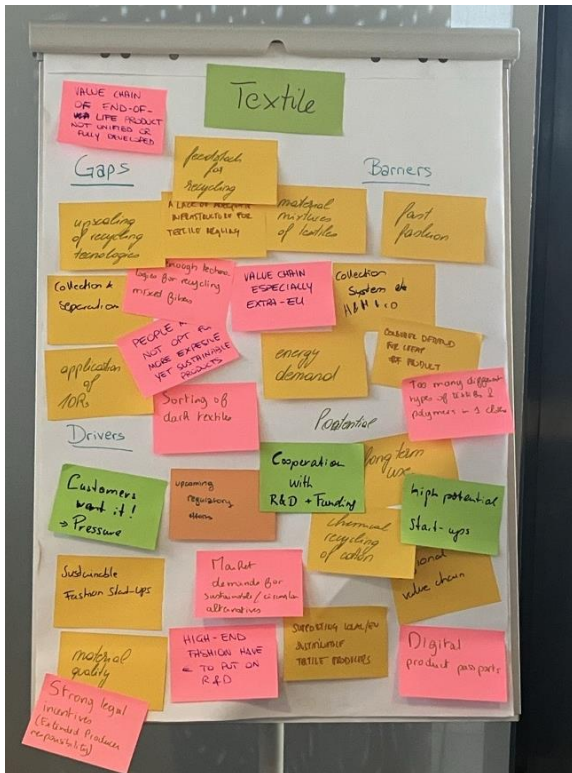 VALUE CHAIN
OF END-OF-
LIFE PRODUCT
NOT UNIFIED OR
FULLY DEVELOPED
Textile
Gaps
feedstock
for
recycling
Barriers
upscaling
of recycling
tecnologies
A LACK OF ADEQUATE
INFRASTRUCTURE FOR
TEXTILE RECYCLING
material
mixtures
of textiles
fast
fashion
Collection &
separation
enough techno
logies for recycling
mixed fibers
VALUE CHAIN
ESPECIALLY
EXTRA-EU
Collection
System
H&M & CO
PEOPLE
NOT OPT FOR
MORE EXPENSIVE
YET SUSTAINABLE
PRODUCTS
energy
demand
CONSUMER DEMAND
FOR CHEAP
PRODUCT
application
of
10R's
Sorting of
dark textiles
Too many different
types of textiles &
polymers in 1 clothes
Drivers
Potential
Customers
want it!
→ Pressure
upcoming
regulatory
Cooperation
with
R&D + Funding
long term
use
high potential
start-ups
chemical
recycling
of cotton
Sustainable
Fashion Start-ups
Market
demands for
sustainable/circular
alternatives
value chain
material
quality
HIGH-END
FASHION HAVE
€ TO PUT ON
R&D
SUPPORTING LOCAL/EU
SUSTAINABLE
TEXTILE PRODUCERS
Digital
product passports
Strong legal
incentives
(Extended Producer
responsibility)